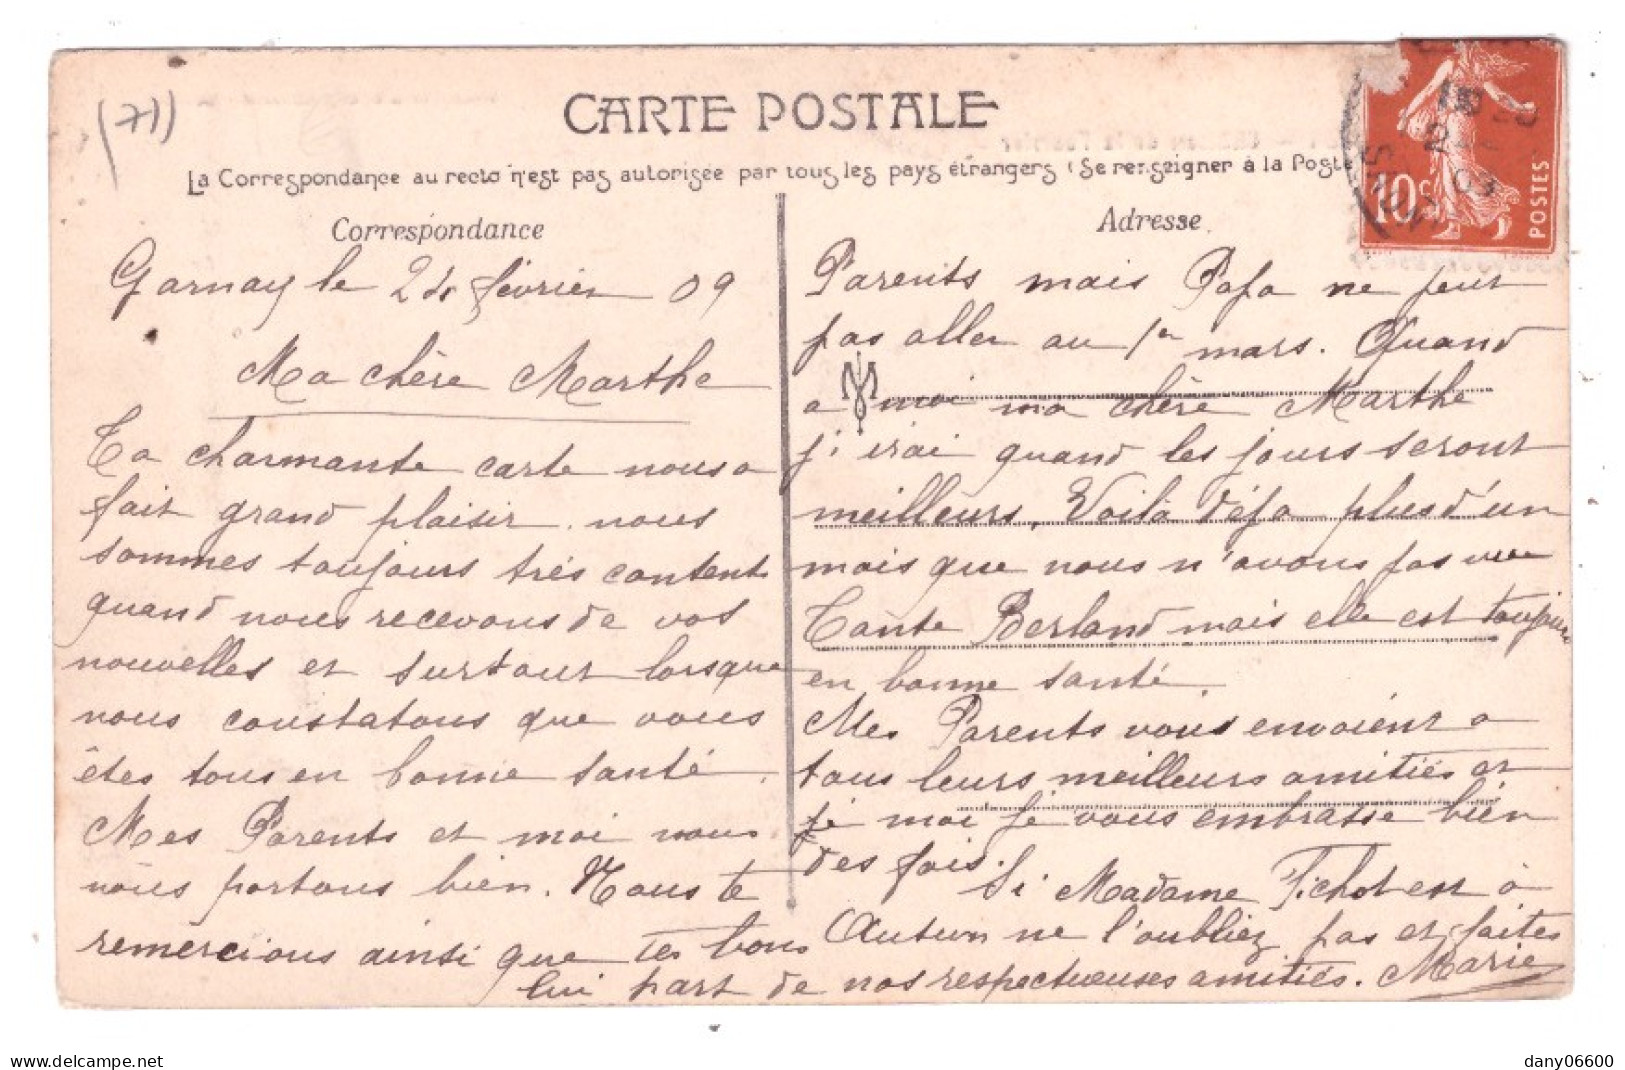 (71)
CARTE POSTALE
La Correspondance au recto n'est pas autorisée par tous les pays étrangers (Se renseigner à la Poste
Correspondance
Garnay le 24 février 09
Ma chère Marthe
Ta charmante carte nous a
fait grand plaisir. nous
sommes toujours très content
quand nous recevons de vos
nouvelles et surtout lorsque
nous constatons que vous
êtes tous en bonne santé.
Mes Parents et moi nous
nous portons bien. Nous te
remercions ainsi que tes bons
Adresse
Parents mais Papa ne peut
pas aller au 1er mars. Quand
a moi ma chère Marthe
j'irai quand les jours seront
meilleurs. Voilà déja plus d'un
mois que nous n'avons pas vue
Tante Berland mais elle est toujours
en bonne santé.
Mes Parents vous envoient a
tous leurs meilleurs amitiés et
je moi je vous embrasse bien
des fois. Si Madame Pichot est à
Autun ne l'oubliez pas et faites
lui part de nos respectueuses amitiés. Marie
10c POSTES
delcampe.net
dany06600